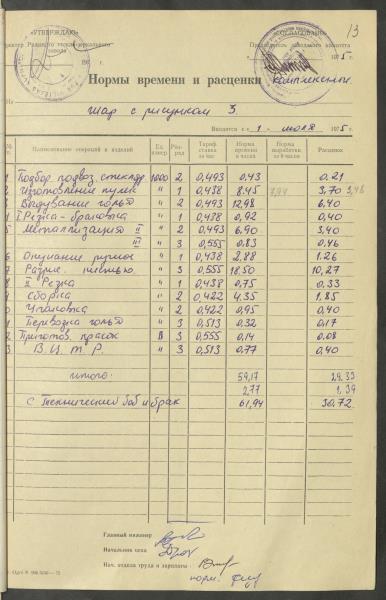 13
«УТВЕРЖДАЮ» «СОГЛАСОВАНО»
завода
1975 г.
Нормы времени и расценки комплексные
На Шар с рисунком 3
Вводятся с «1» июля 1975 г.
Наименование операций и изделий Ед. измер Разряд Тариф. ставка за час Норма времени в часах Норма выработки за 8 часов Расценок
Подбор подвоз. стеклодр 1000 2 0,493 0,43 0,21
2 Изготовление пульки " 1 0,438 8.45 3,70
3 Выдувание гольё " 2 0,493 12,98 6,40
4 I Резка-браковка " 1 0,438 0,92 0,40
5 Металлизация II " 2 0,493 6,90 3,40
III " 3 0,555 0,83 0,46
6 Окунание пульки " 1 0,438 2.88 1.26
7 Разрис. кистью " 3 0,555 18,50 10,27
8 II Резка " 1 0,438 0.75 0,33
9 Сборка " 2 0,422 4.35 1.85
0 Упаковка " 2 0,422 0,95 0,40
1 Перевозка гольё " 3 0,513 0,32 0,17
2 Приготов. красок 3 0,555 0,14 0,08
3 В. Ц. Т. Р. " 3 0,513 0,77 0,40
итого. 59,17 29,33
2,77 1,39
с технический бой и брак 61,94 30.72
Главный инженер
Начальник цеха
Нач. отдела труда и зарплаты
норм.